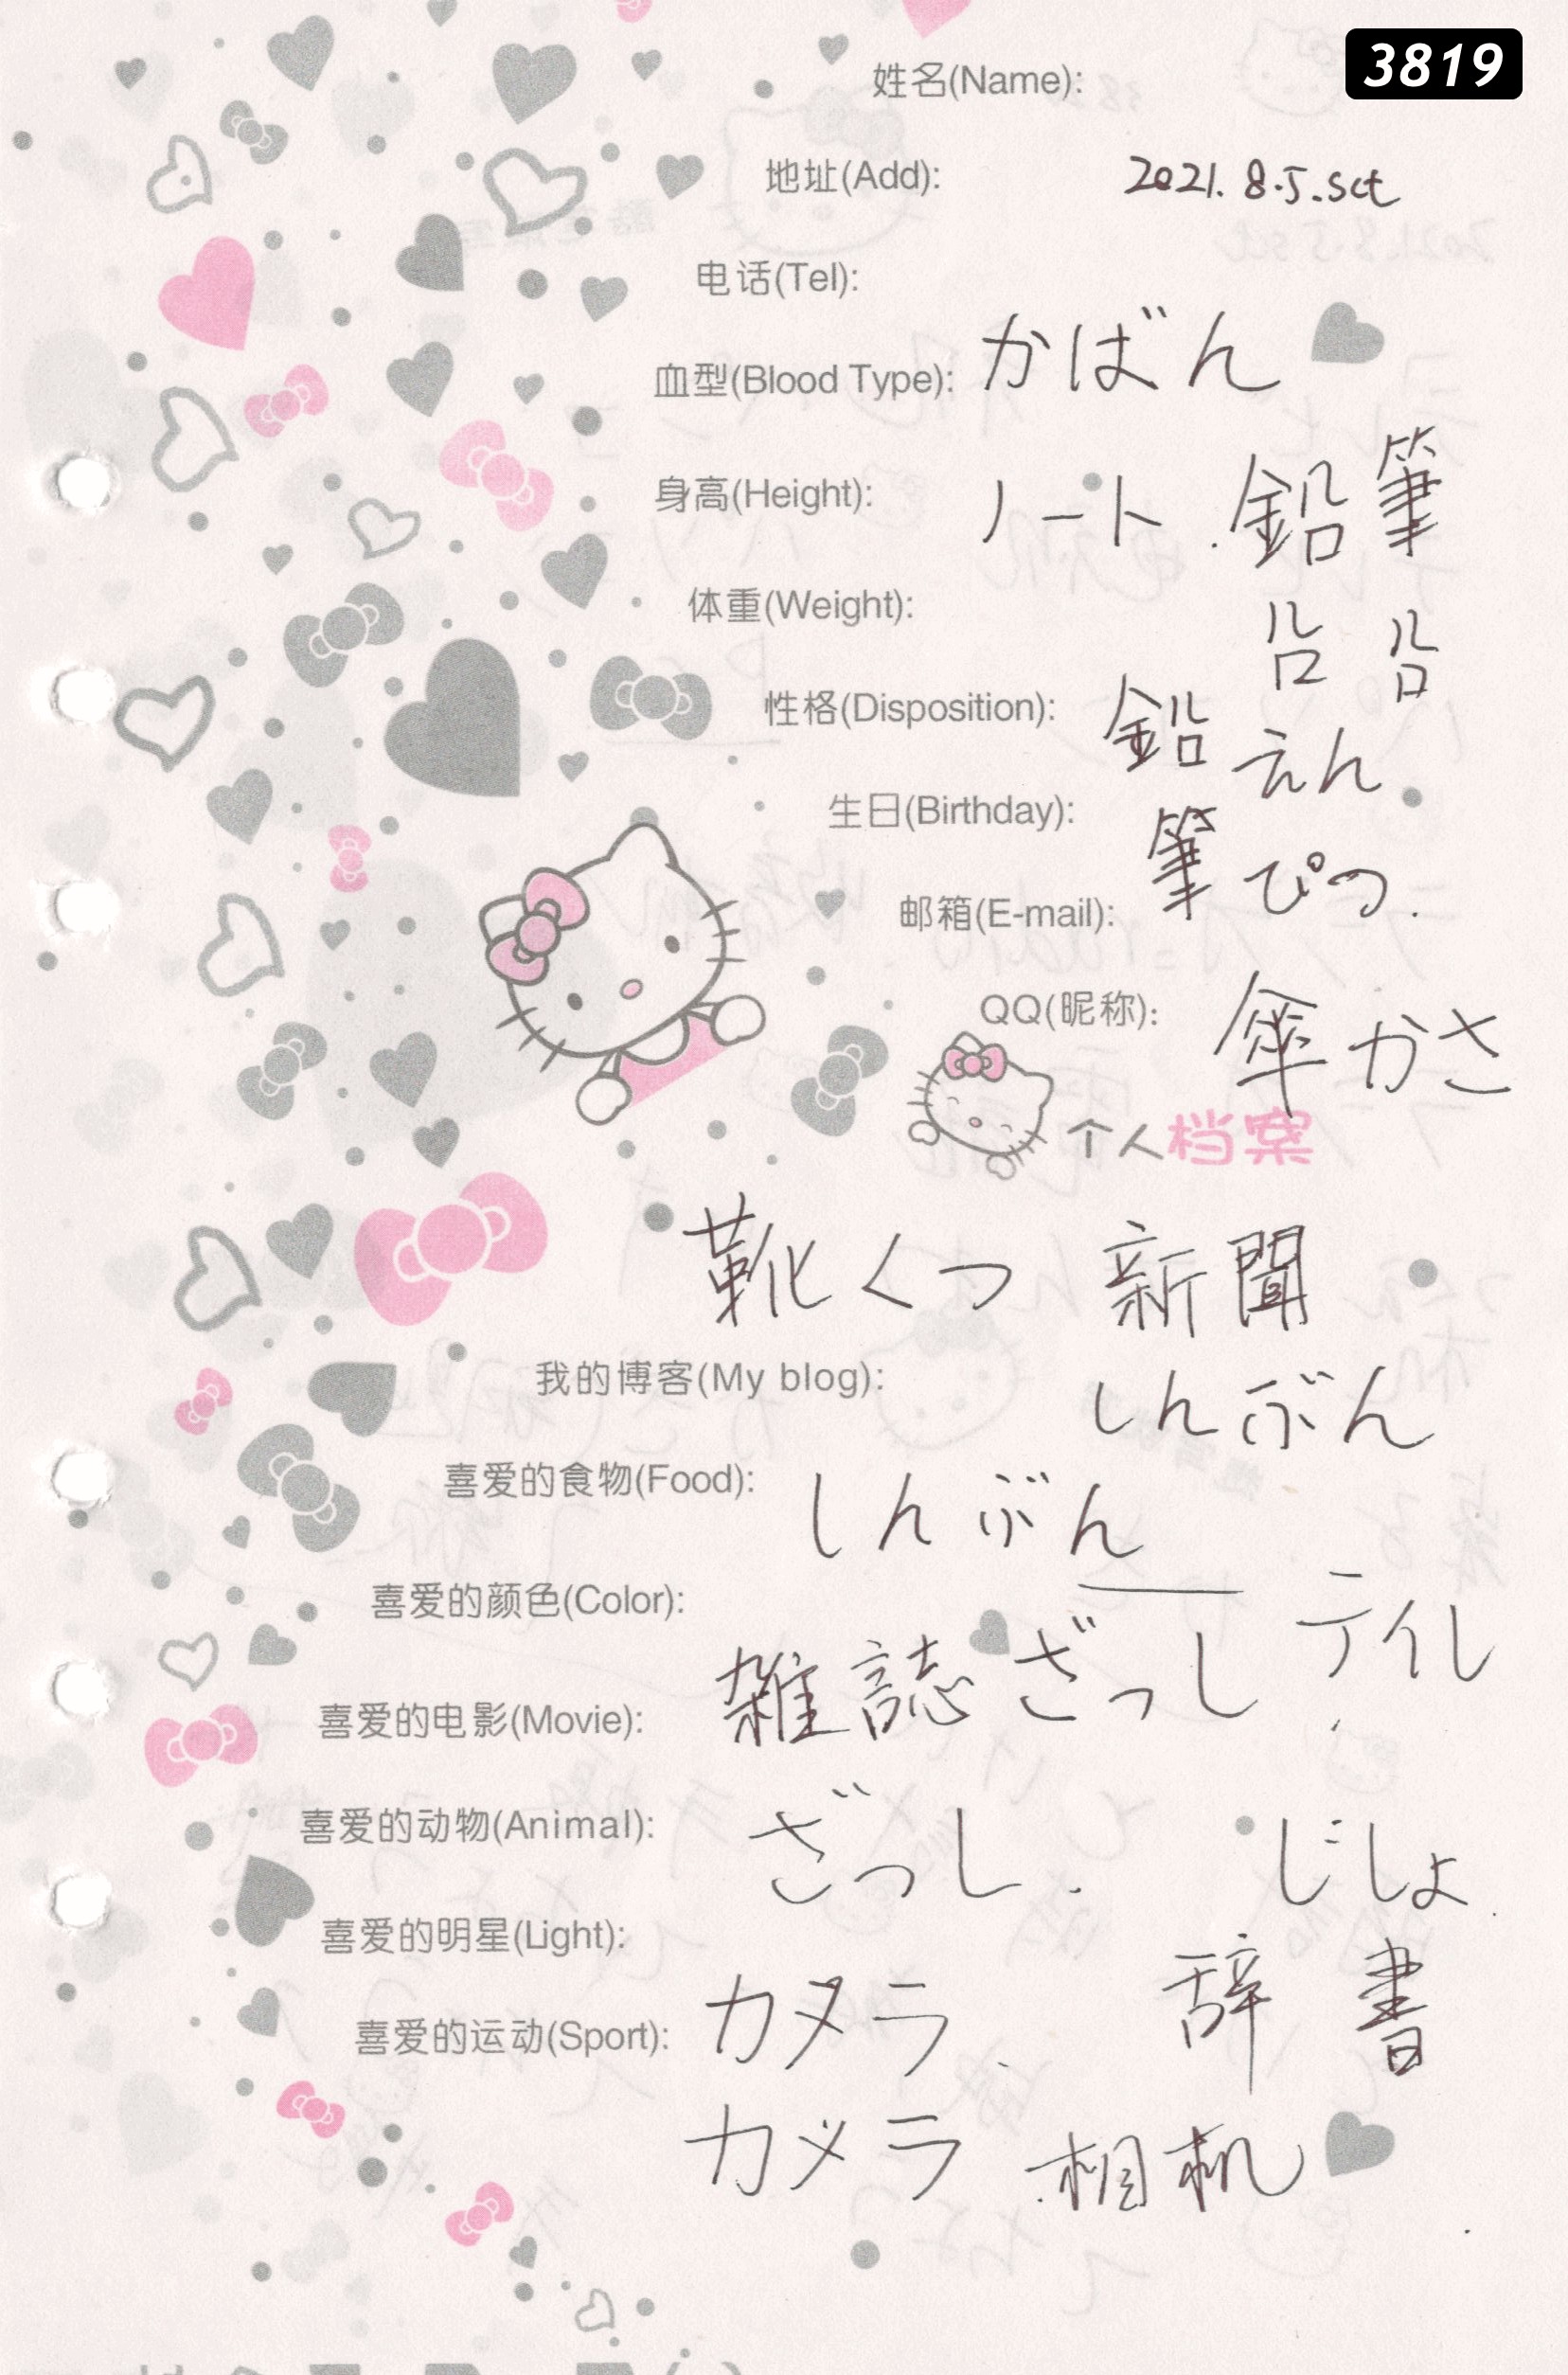 3819
姓名(Name):
地址(Add): 2021.8.5.sct
电话(Tel):
血型(Blood Type): かばん
身高(Height): ノート.鉛筆
体重(Weight): 㕣 㕣
性格(Disposition): 鉛 えん
生日(Birthday):
筆 ぴつ.
邮箱(E-mail):
QQ(昵称): 傘 かさ
个人档案
靴 くつ 新聞
我的博客(My blog): しんぶん
喜爱的食物(Food): しんぶん
喜爱的颜色(Color):
喜爱的电影(Movie): 雑誌 ざっし
喜爱的动物(Animal): ざっし. じしょ.
喜爱的明星(Light):
辞書
喜爱的运动(Sport): カメラ
カメラ.相机